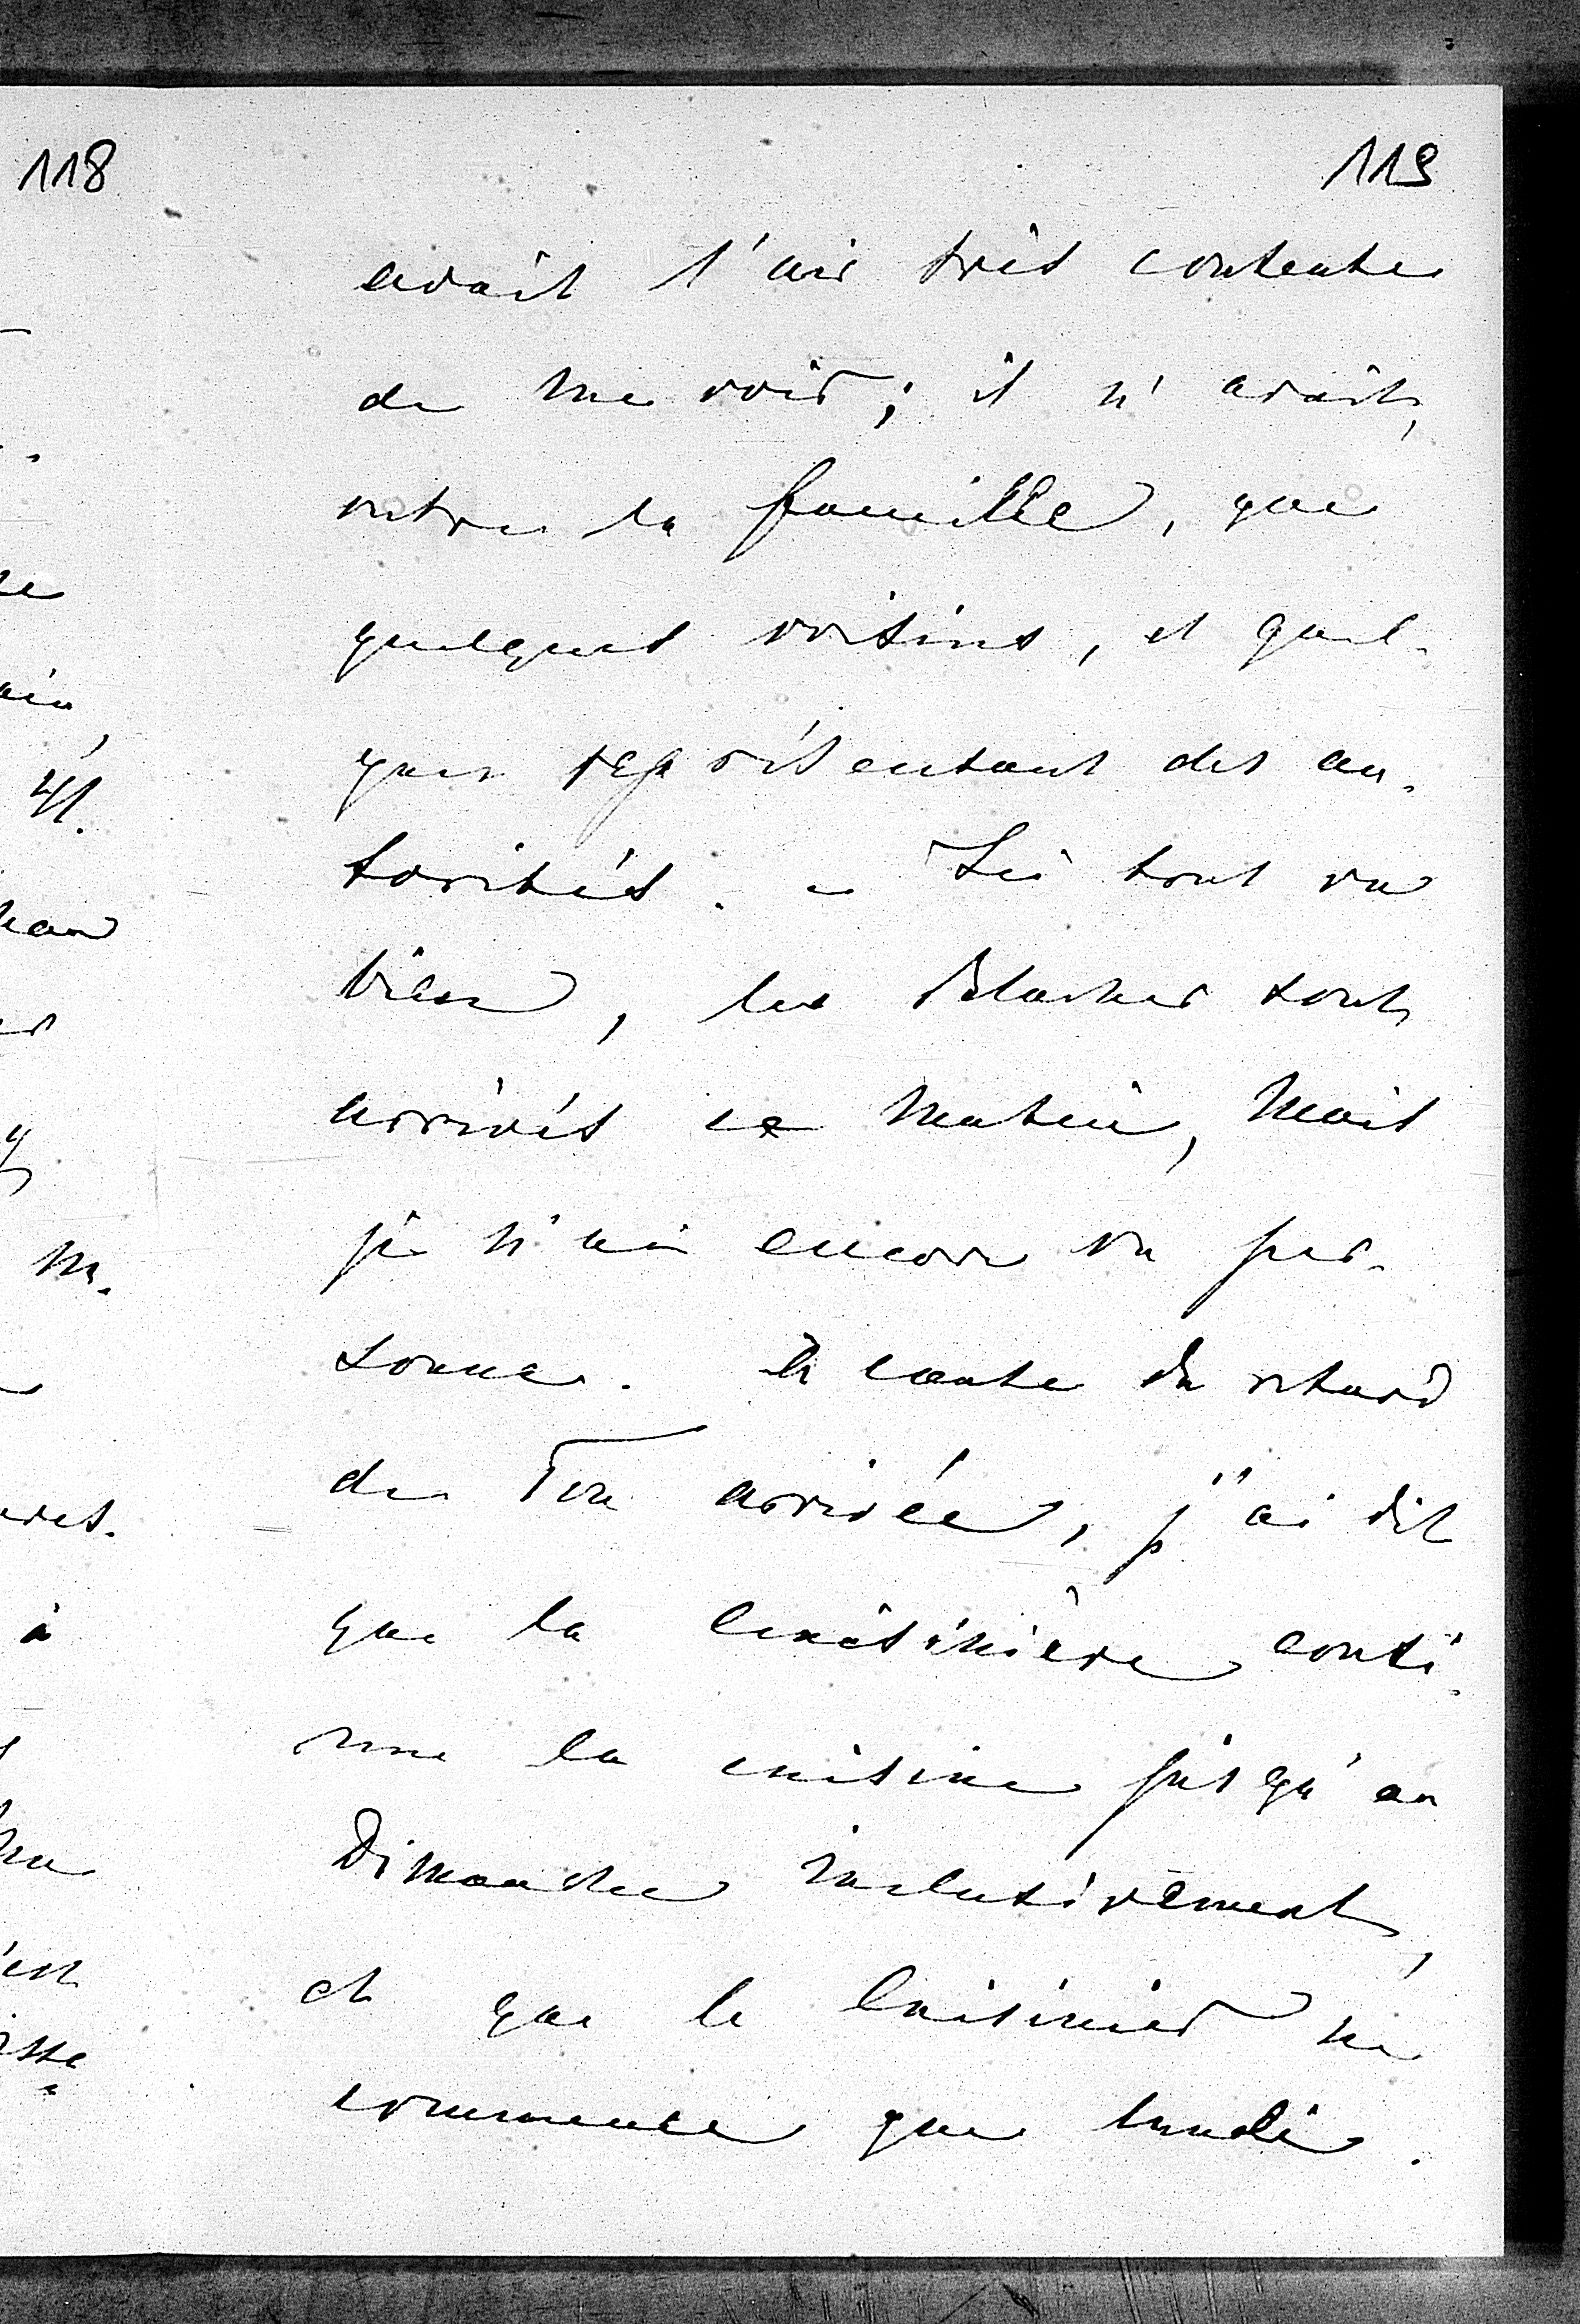 118
119
avait l'air très contente
de me voir; il n'avait,
outre la famille, que
quelques voisins, et quel-
ques représentant des au-
torités. – Ici tout va
bien, les Blacher sont
arrivés ce matin, mais
je n'ai encore vu per-
sonne. A cause du retard
de Ton arrivée, j'ai dit
que la cuisinière conti-
nue la cuisine jusqu'au
Dimanche inclusivement,
et que le Cuisinier ne
commence que lundi.